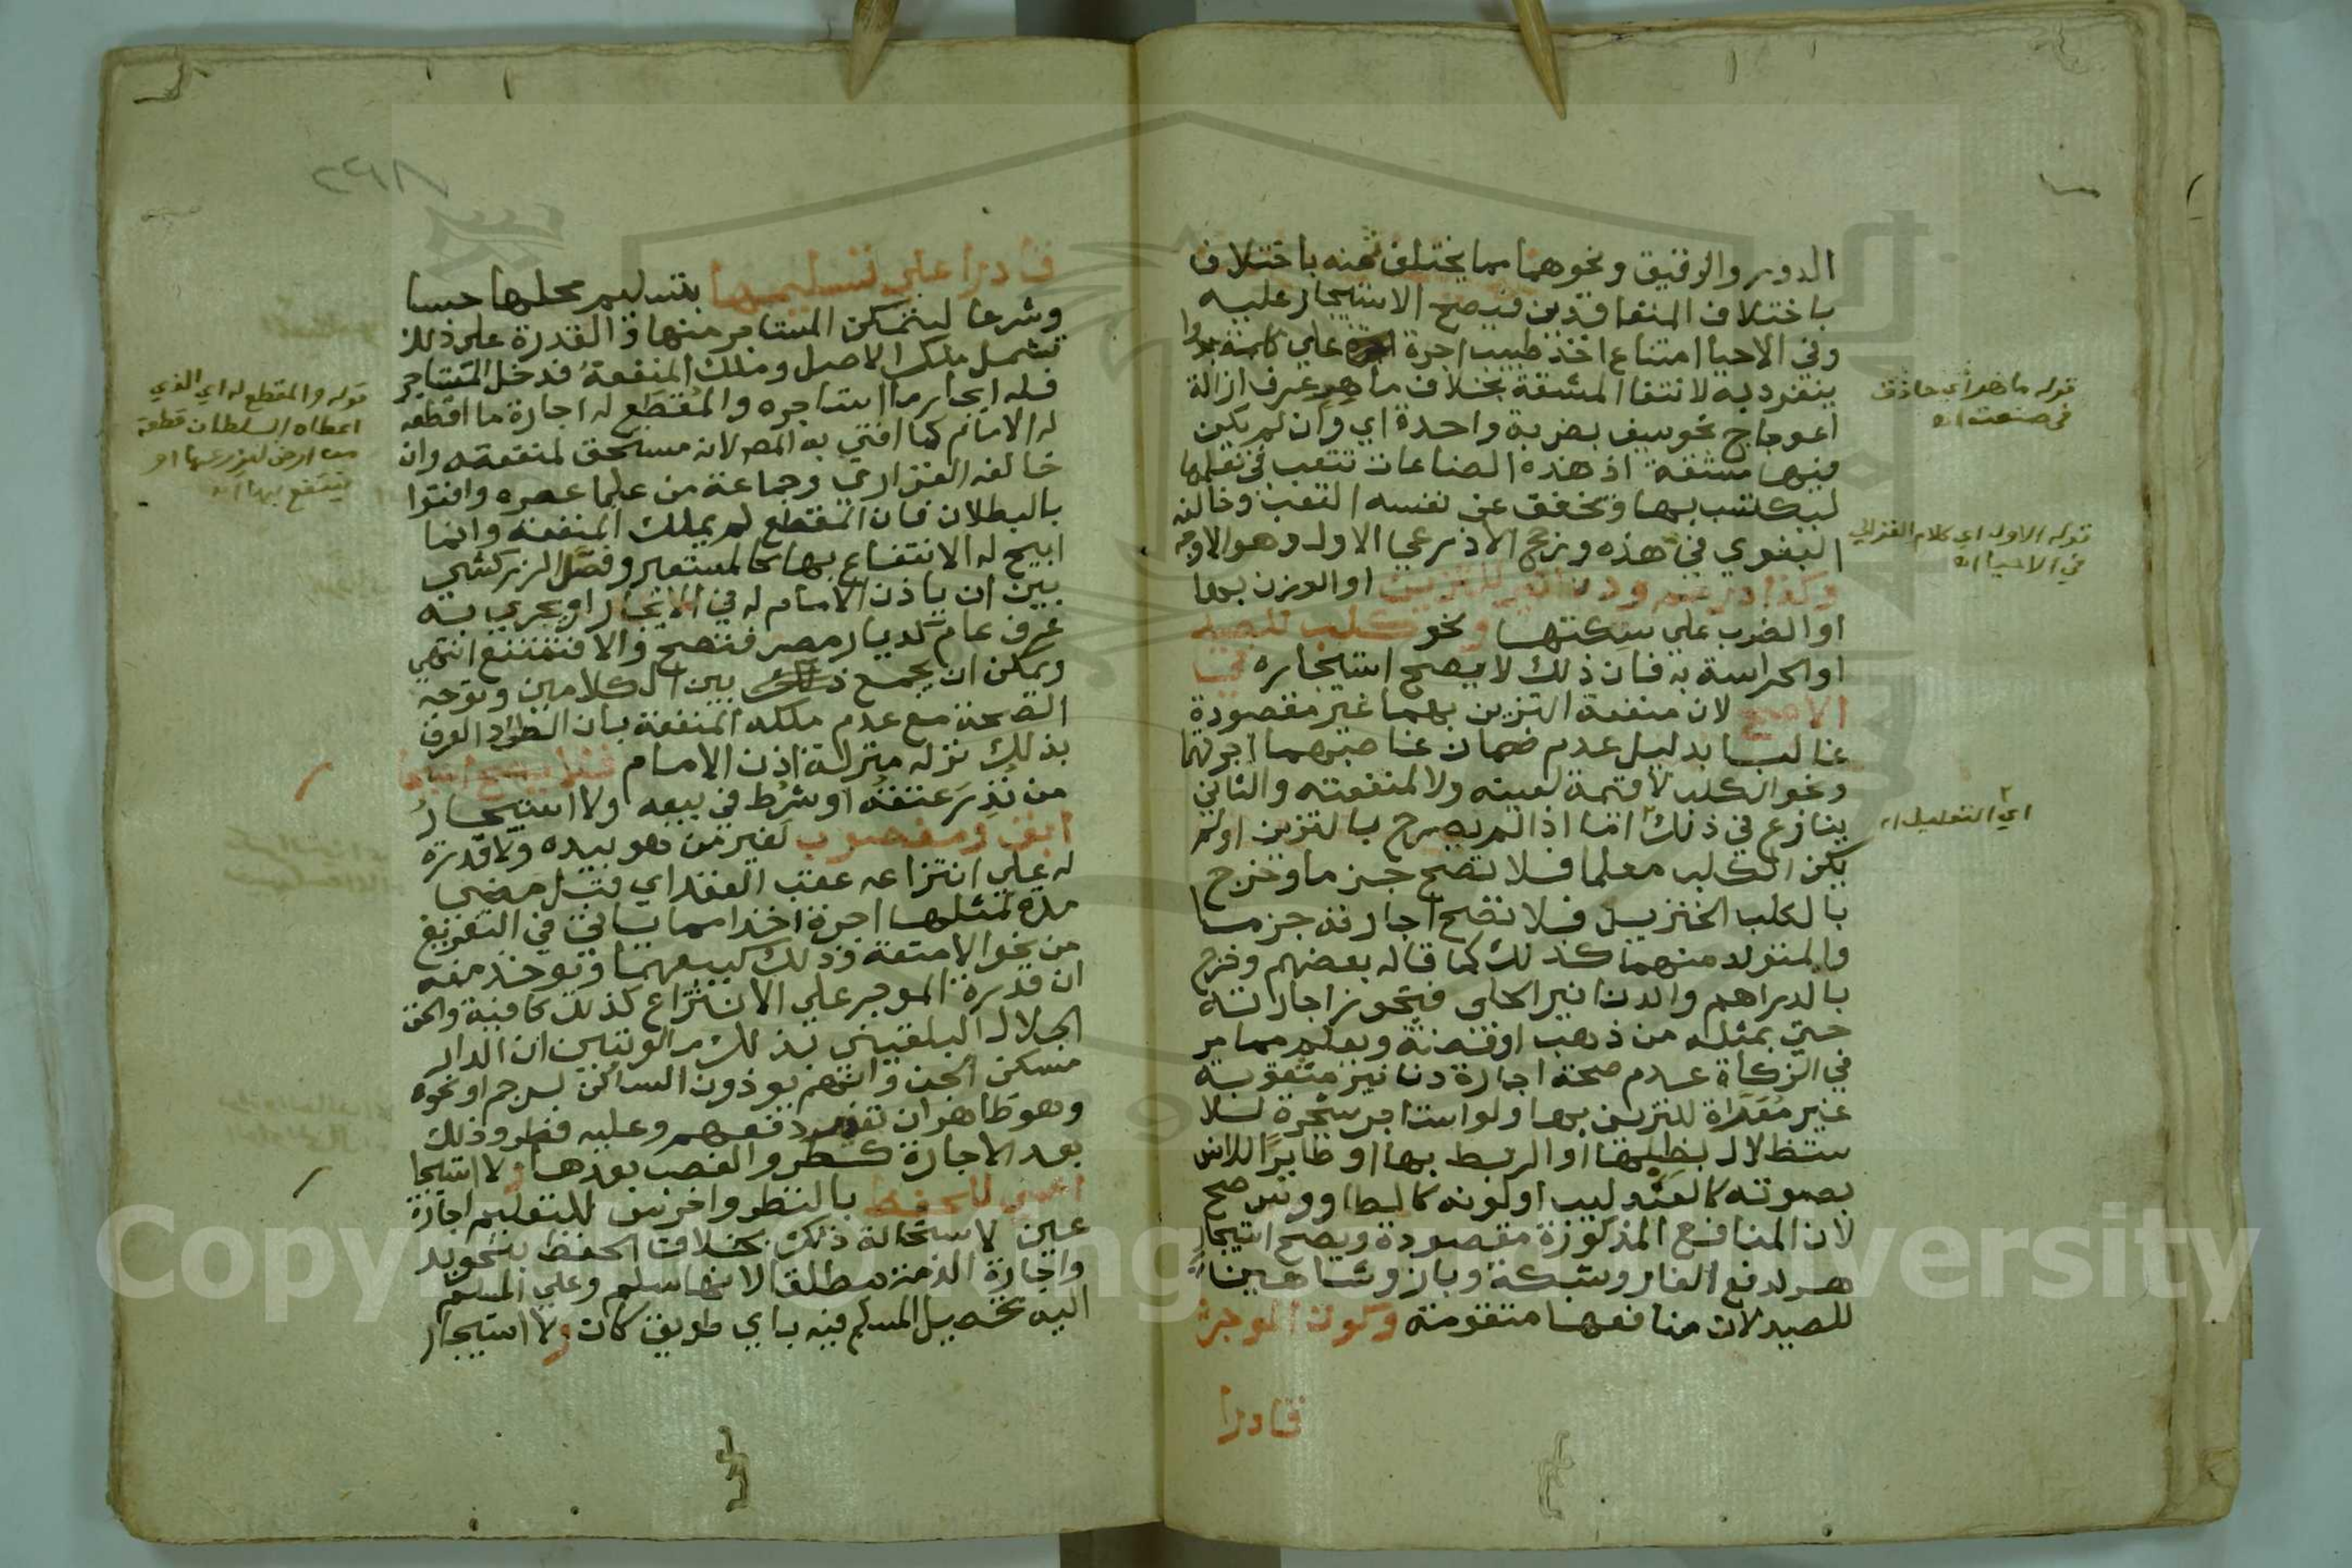 الدور والرقيق ونحوهما مما يختلف ثمنه باختلاف
باختلاف المتعاقدين فيصح الاستيجار عليه
وفي الاحيا امتناع اخذ طبيب اجرة علي كلمة
ينفرد به لانتفا المشقة بخلاف ماهر عرف ازالة
اعوجاج نحو سيف بضربة واحدة اي وان لم يكن
فيها مشقة اذ هذه الصناعات تتعب في تعلمها
ليكتسب بها وتخفف عن نفسه التعب وخالفه
البغوي في هذه ورجح الاذرعي الاول وهو الاوجه
وكذا دراهم ودنانير للتزيين او الوزن بها
او الضرب علي سكتها ونحو كلب للصيد
او الحراسة به فان ذلك لا يصح استيجاره في
الاصح لان منفعة التزين بهما غير مقصودة
غالبا بدليل عدم ضمان غاصبهما اجرتهما
ونحو الكلب لا قيمة لعينه ولا لمنفعته والثاني
ينازع في ذلك اما اذا لم يصرح بالتزين او لم
يكن الكلب معلما فلا تصح جزما وخرج
بالكلب الخنزير فلا تصح اجارته جزما
والمتولد منهما كذلك كما قاله بعضهم وخرج
بالدراهم والدنانير الحلي فيجوز اجارته
حتي بمثله من ذهب او فضة ويعلم مما مر
في الزكاة عدم صحة اجارة دنانير مثقوبة
غير مُعَرَّاة للتزين بها ولو استاجر شجرة للا
ستظلال بظلها او الربط بها او طايرًا للانس
بصوته كالعندليب او لونه كالطاووس صح
لان المنافع المذكورة مقصودة ويصح استيجار
هر لدفع الفار وشبكة وباز وشاهين
للصيد لان منافعها متقومة وكون الموجر
قادرا
قوله ماهر أي حاذق
في صنعته اه
قوله الاول اي كلام الغزالي
في الاحيا اه
٢
اي التعليل اه
٢٩٨
قادرا علي تسليمها بتسليم محلها حسا
وشرعا ليتمكن المستاجر منها و القدرة علي ذلك
تشمل ملك الاصل وملك المنفعة فدخل المستاجر
فله ايجار ما استاجره والمُقطَع له اجارة ما اقطعه
له الامام كما افتي به المصر لانه مستحق لمنفعته وان
خالفه الفزاري وجماعة من علما عصره وافتوا
بالبطلان فان المقطع لم يملك المنفعة وانما
ابيح له الانتفاع بها كالمستعير وفصّل الزركشي
بين ان ياذن الامام له في الايجار او يجري به
عرف عام كديار مصر فتصح والا فتمتنع انتهي
ويمكن ان يجمع بذلك بين الكلامين وتوجه
الصحة مع عدم ملكه المنفعة بان اطراد العرف
بذلك نزله منزلة اذن الامام فلا يصح ايجار
من نُذِرَ عتقه او شُرط في بيعه ولا استيجارُ
ابق ومغصوب لغير من هو بيده ولا قدرة
له علي انتزاعه عقب العقد اي قبل مضي
مدة لمثلها اجرة اخذا مما ياتي في التفريغ
من نحو الامتعة وذلك كبيعهما وتوخذ منه
ان قدرة الموجر علي الانتزاع كذلك كافية والحق
الجلال البلقيني بذلك ما لو تبين ان الدار
مسكن الجن وانهم يوذون الساكن برجم او نحوه
وهو ظاهر ان تعذر دفعهم وعليه فطرو ذلك
بعد الاجارة كطرو الغصب بعدها ولا استيجا
اعمي للحفظ بالنظر واخرس للتعليم اجارة
عين لاستحالة ذلك بخلاف الحفظ بنحو يد
واجارة الذمة مطلقا لانها سلم وعلي المسلم
اليه تحصيل المسلم فيه باي طريق كان ولا استيجار
قوله والمقطع له اي الذي
اعطاه السلطان قطعة
من ارض ليزرعها او
ينتفع بها اه
Copyright © King Saud University